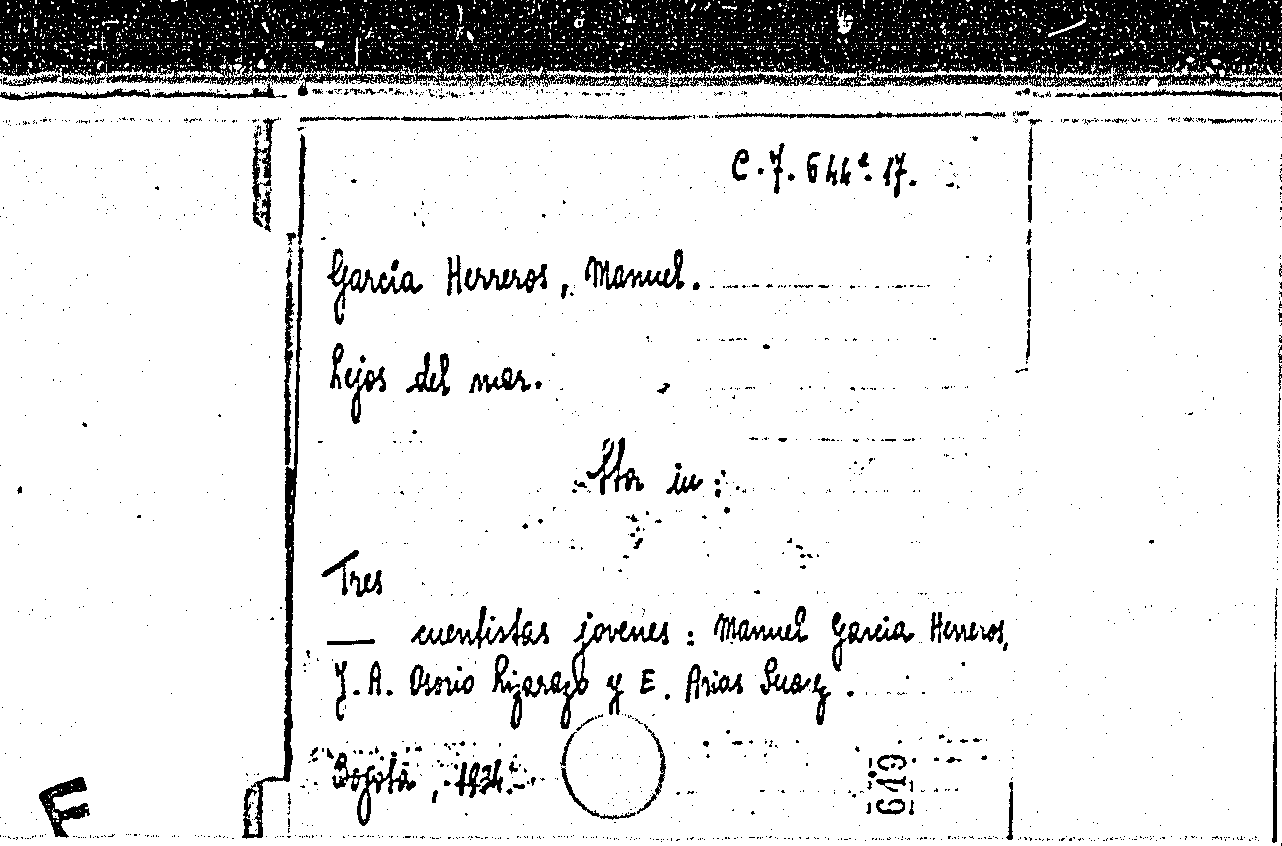 C.7. 644ª. 17.
García Herreros, Manuel.
Lejos del mar.
in:
Tres
— cuentistas jovenes: Manuel García Herreros,
J. A. Osorio Lizarazo y E. Arias Suarez.
Bogotá, 1934.
649
E